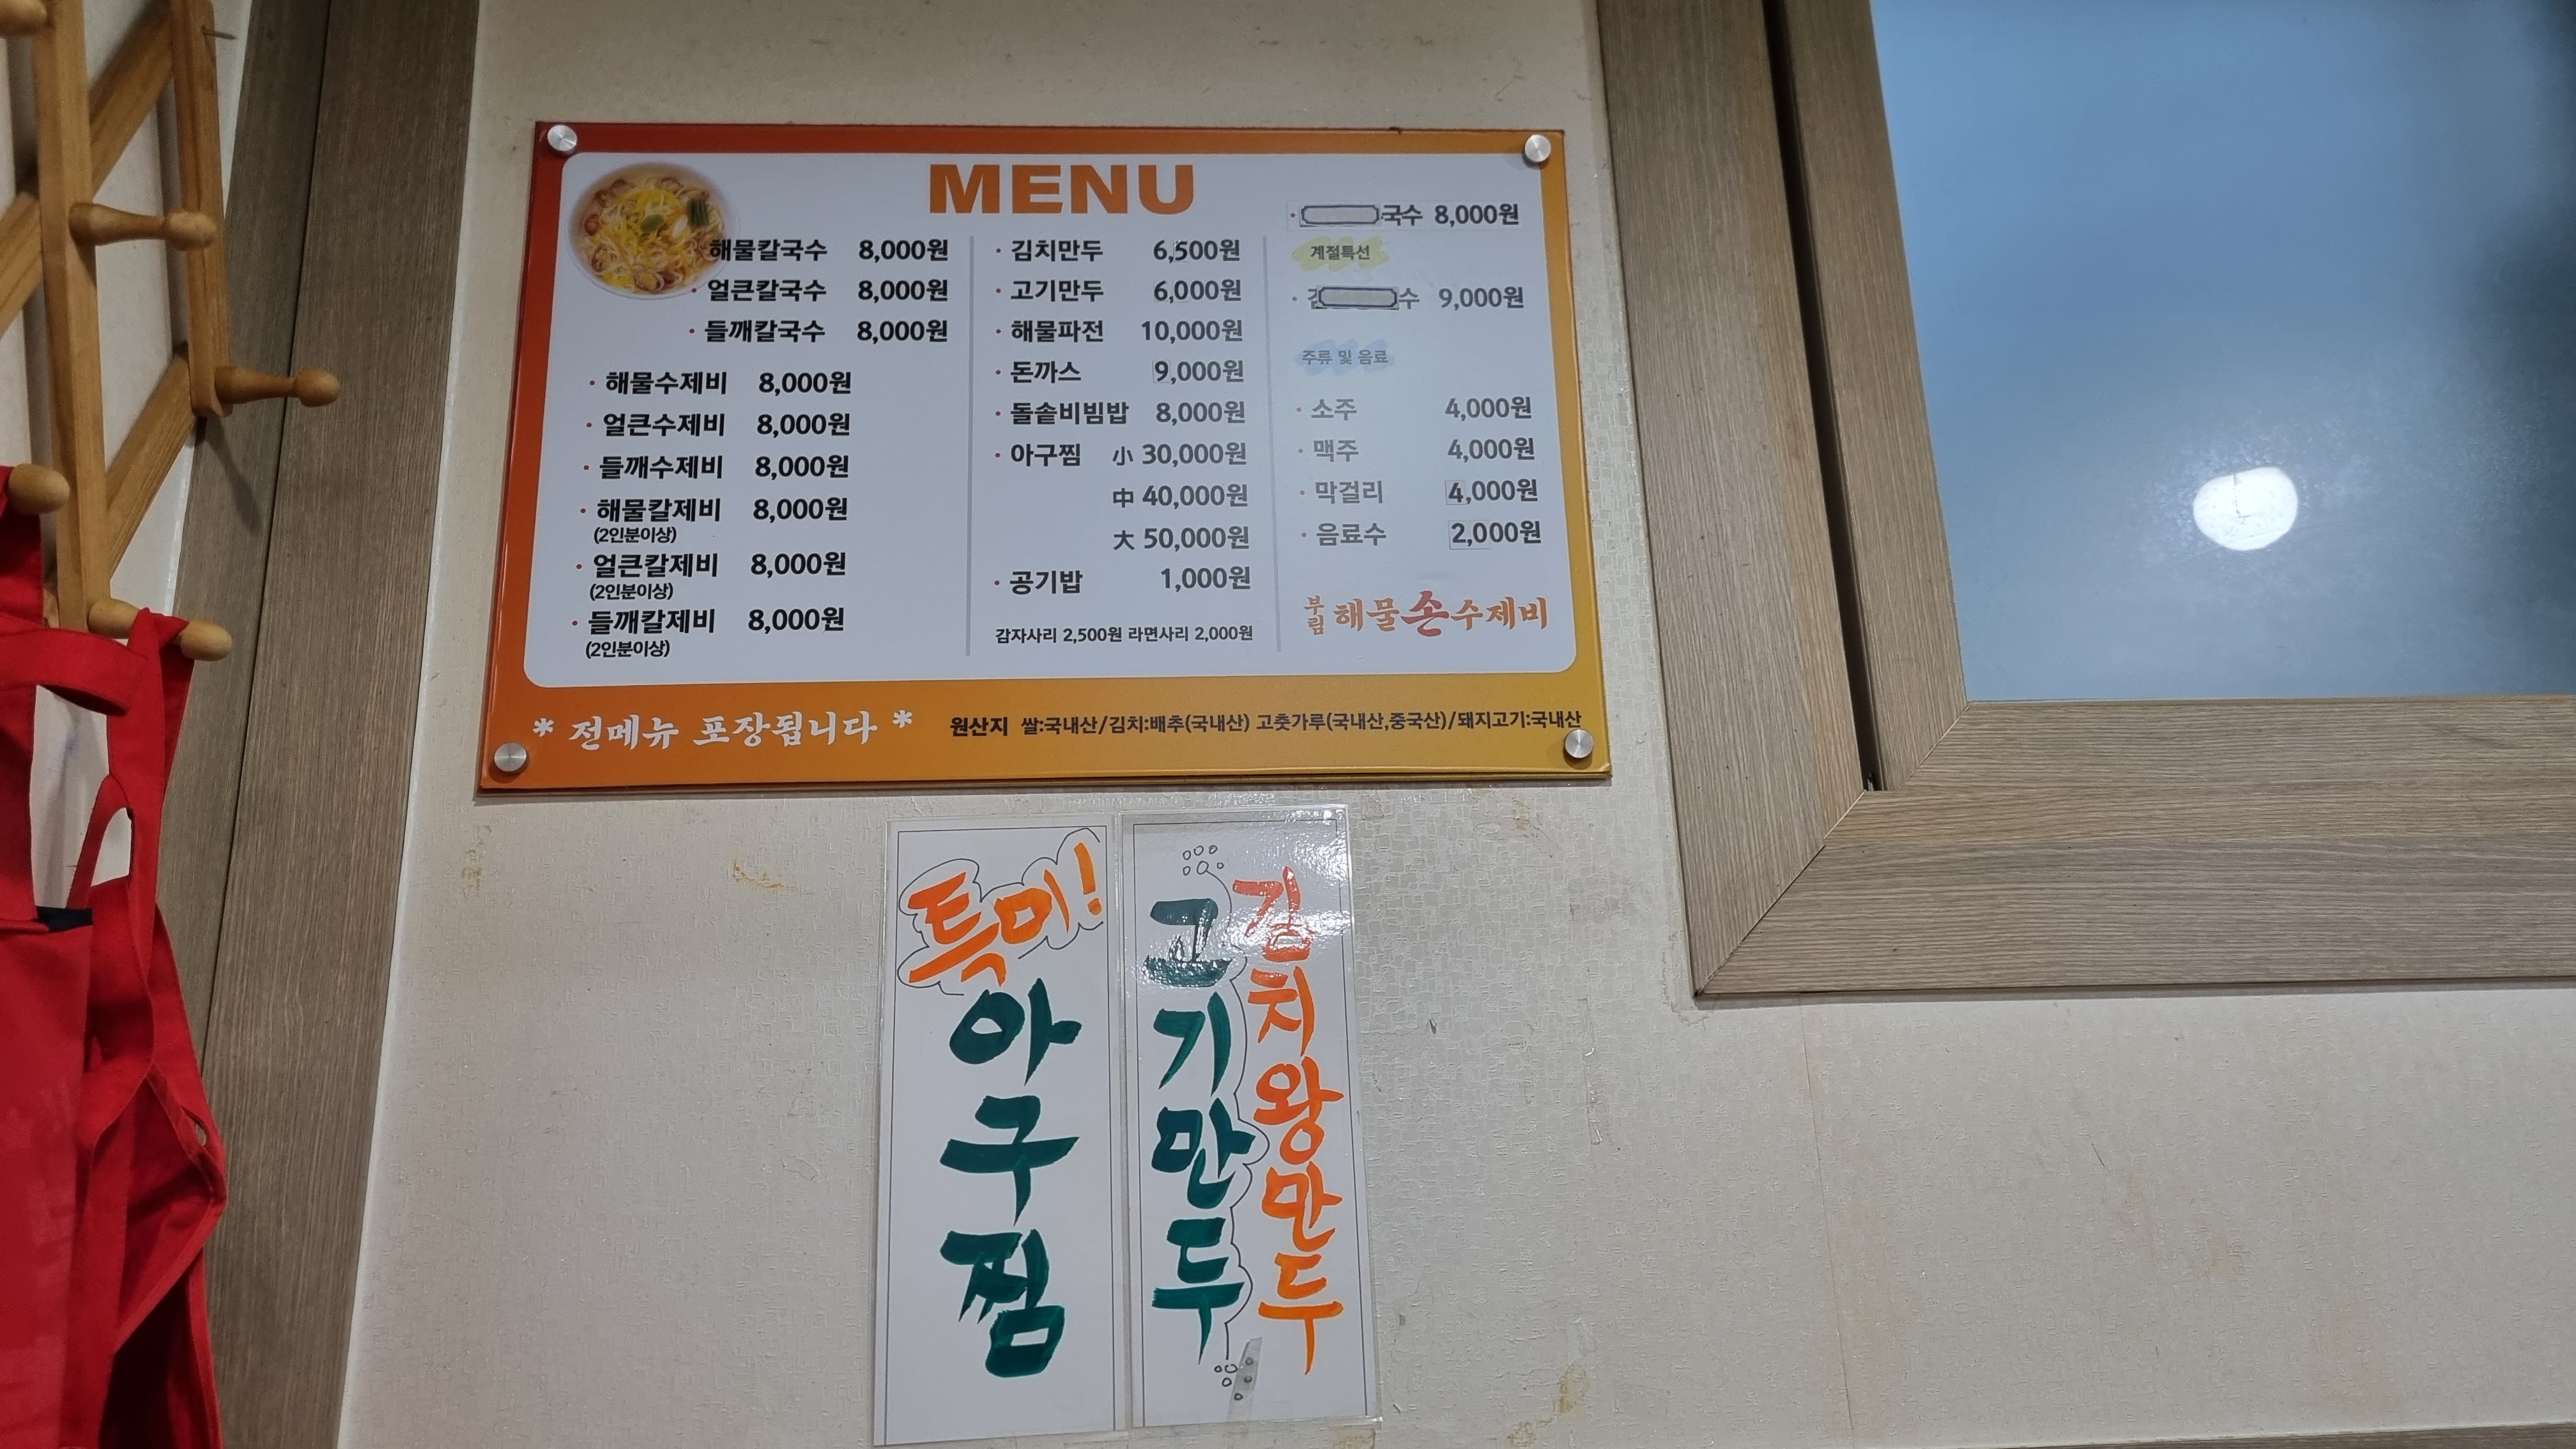 MENU
해물칼국수 8,000원
· 얼큰칼국수 8,000원
· 들깨칼국수 8,000원
· 해물수제비 8,000원
· 얼큰수제비 8,000원
· 들깨수제비 8,000원
· 해물칼제비 8,000원
(2인분이상)
· 얼큰칼제비 8,000원
(2인분이상)
· 들깨칼제비 8,000원
(2인분이상)
· 김치만두 6,500원
· 고기만두 6,000원
· 해물파전 10,000원
· 돈까스 9,000원
· 돌솥비빔밥 8,000원
· 아구찜 小 30,000원
中 40,000원
大 50,000원
· 공기밥 1,000원
감자사리 2,500원 라면사리 2,000원
· 국수 8,000원
계절특선
· 수 9,000원
주류 및 음료
· 소주 4,000원
· 맥주 4,000원
· 막걸리 4,000원
· 음료수 2,000원
부림 해물손수제비
* 전메뉴 포장됩니다 *
원산지 쌀:국내산/김치:배추(국내산) 고춧가루(국내산,중국산)/돼지고기:국내산
특미!
아구찜
고기만두
김치왕만두